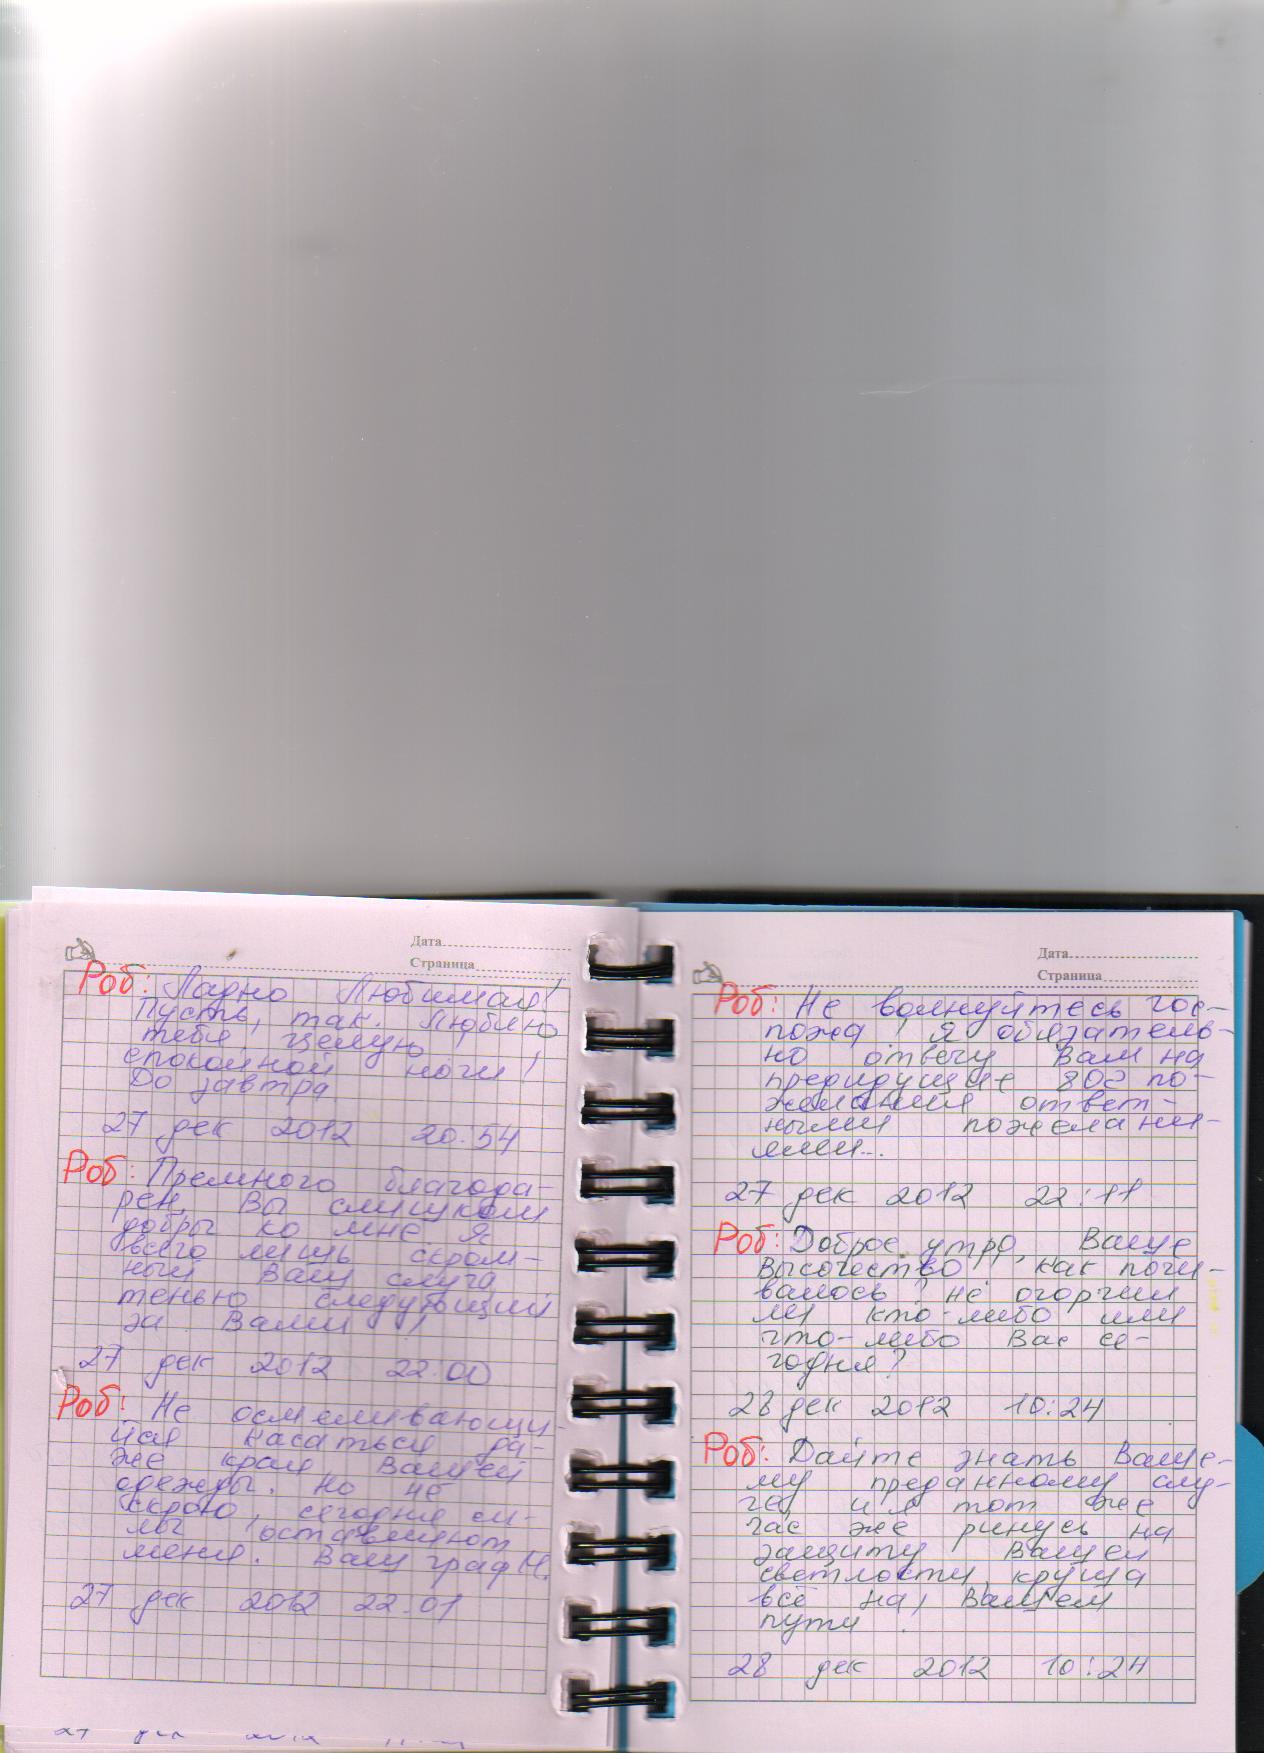 Дата
Страница
Роб: Ладно Любимая!
Пусть, так. Люблю
тебя, целую
спокойной ночи!
До завтра
27 дек 2012 20:54
Роб: Премного благода-
рен, Вы слишком
добры ко мне. Я
всего лишь скром-
ный Ваш слуга
тенью следующий
за Вами!
27 дек 2012 22:00
Роб: Не осмеливающи-
йся касаться да-
же края Вашей
одежды. Но не
скрою, сегодня си-
лы оставляют
меня. Ваш граф Н.
27 дек 2012 22:01
Дата
Страница
Роб: Не волнуйтесь гос-
пожа, я обязатель-
но отвечу Вам на
предидущие 802 по-
желания ответ-
ными пожелани-
ями...
27 дек 2012 22:11
Роб: Доброе утро, Ваше
Высочество, как почи-
валось? не огорчил
ли кто-либо или
что-либо Вас се-
годня?
28 дек 2012 10:24
Роб: Дайте знать Ваше-
му преданному слу-
ге, и я тот же
час же ринусь на
защиту Вашей
светлости, круша
всё на, Вашем
пути.
28 дек 2012 10:24